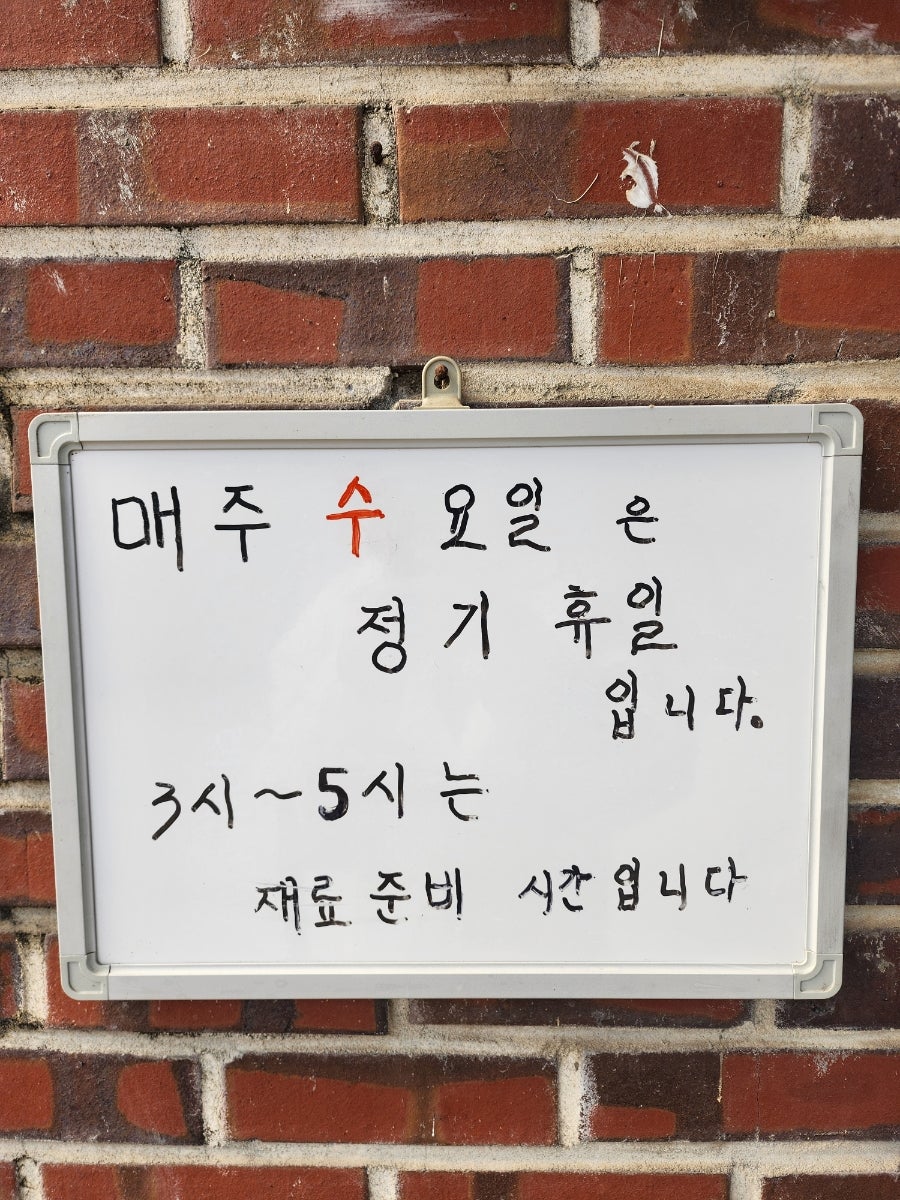 매주 수요일은
정기 휴일
입니다.
3시~5시는
재료준비 시간입니다